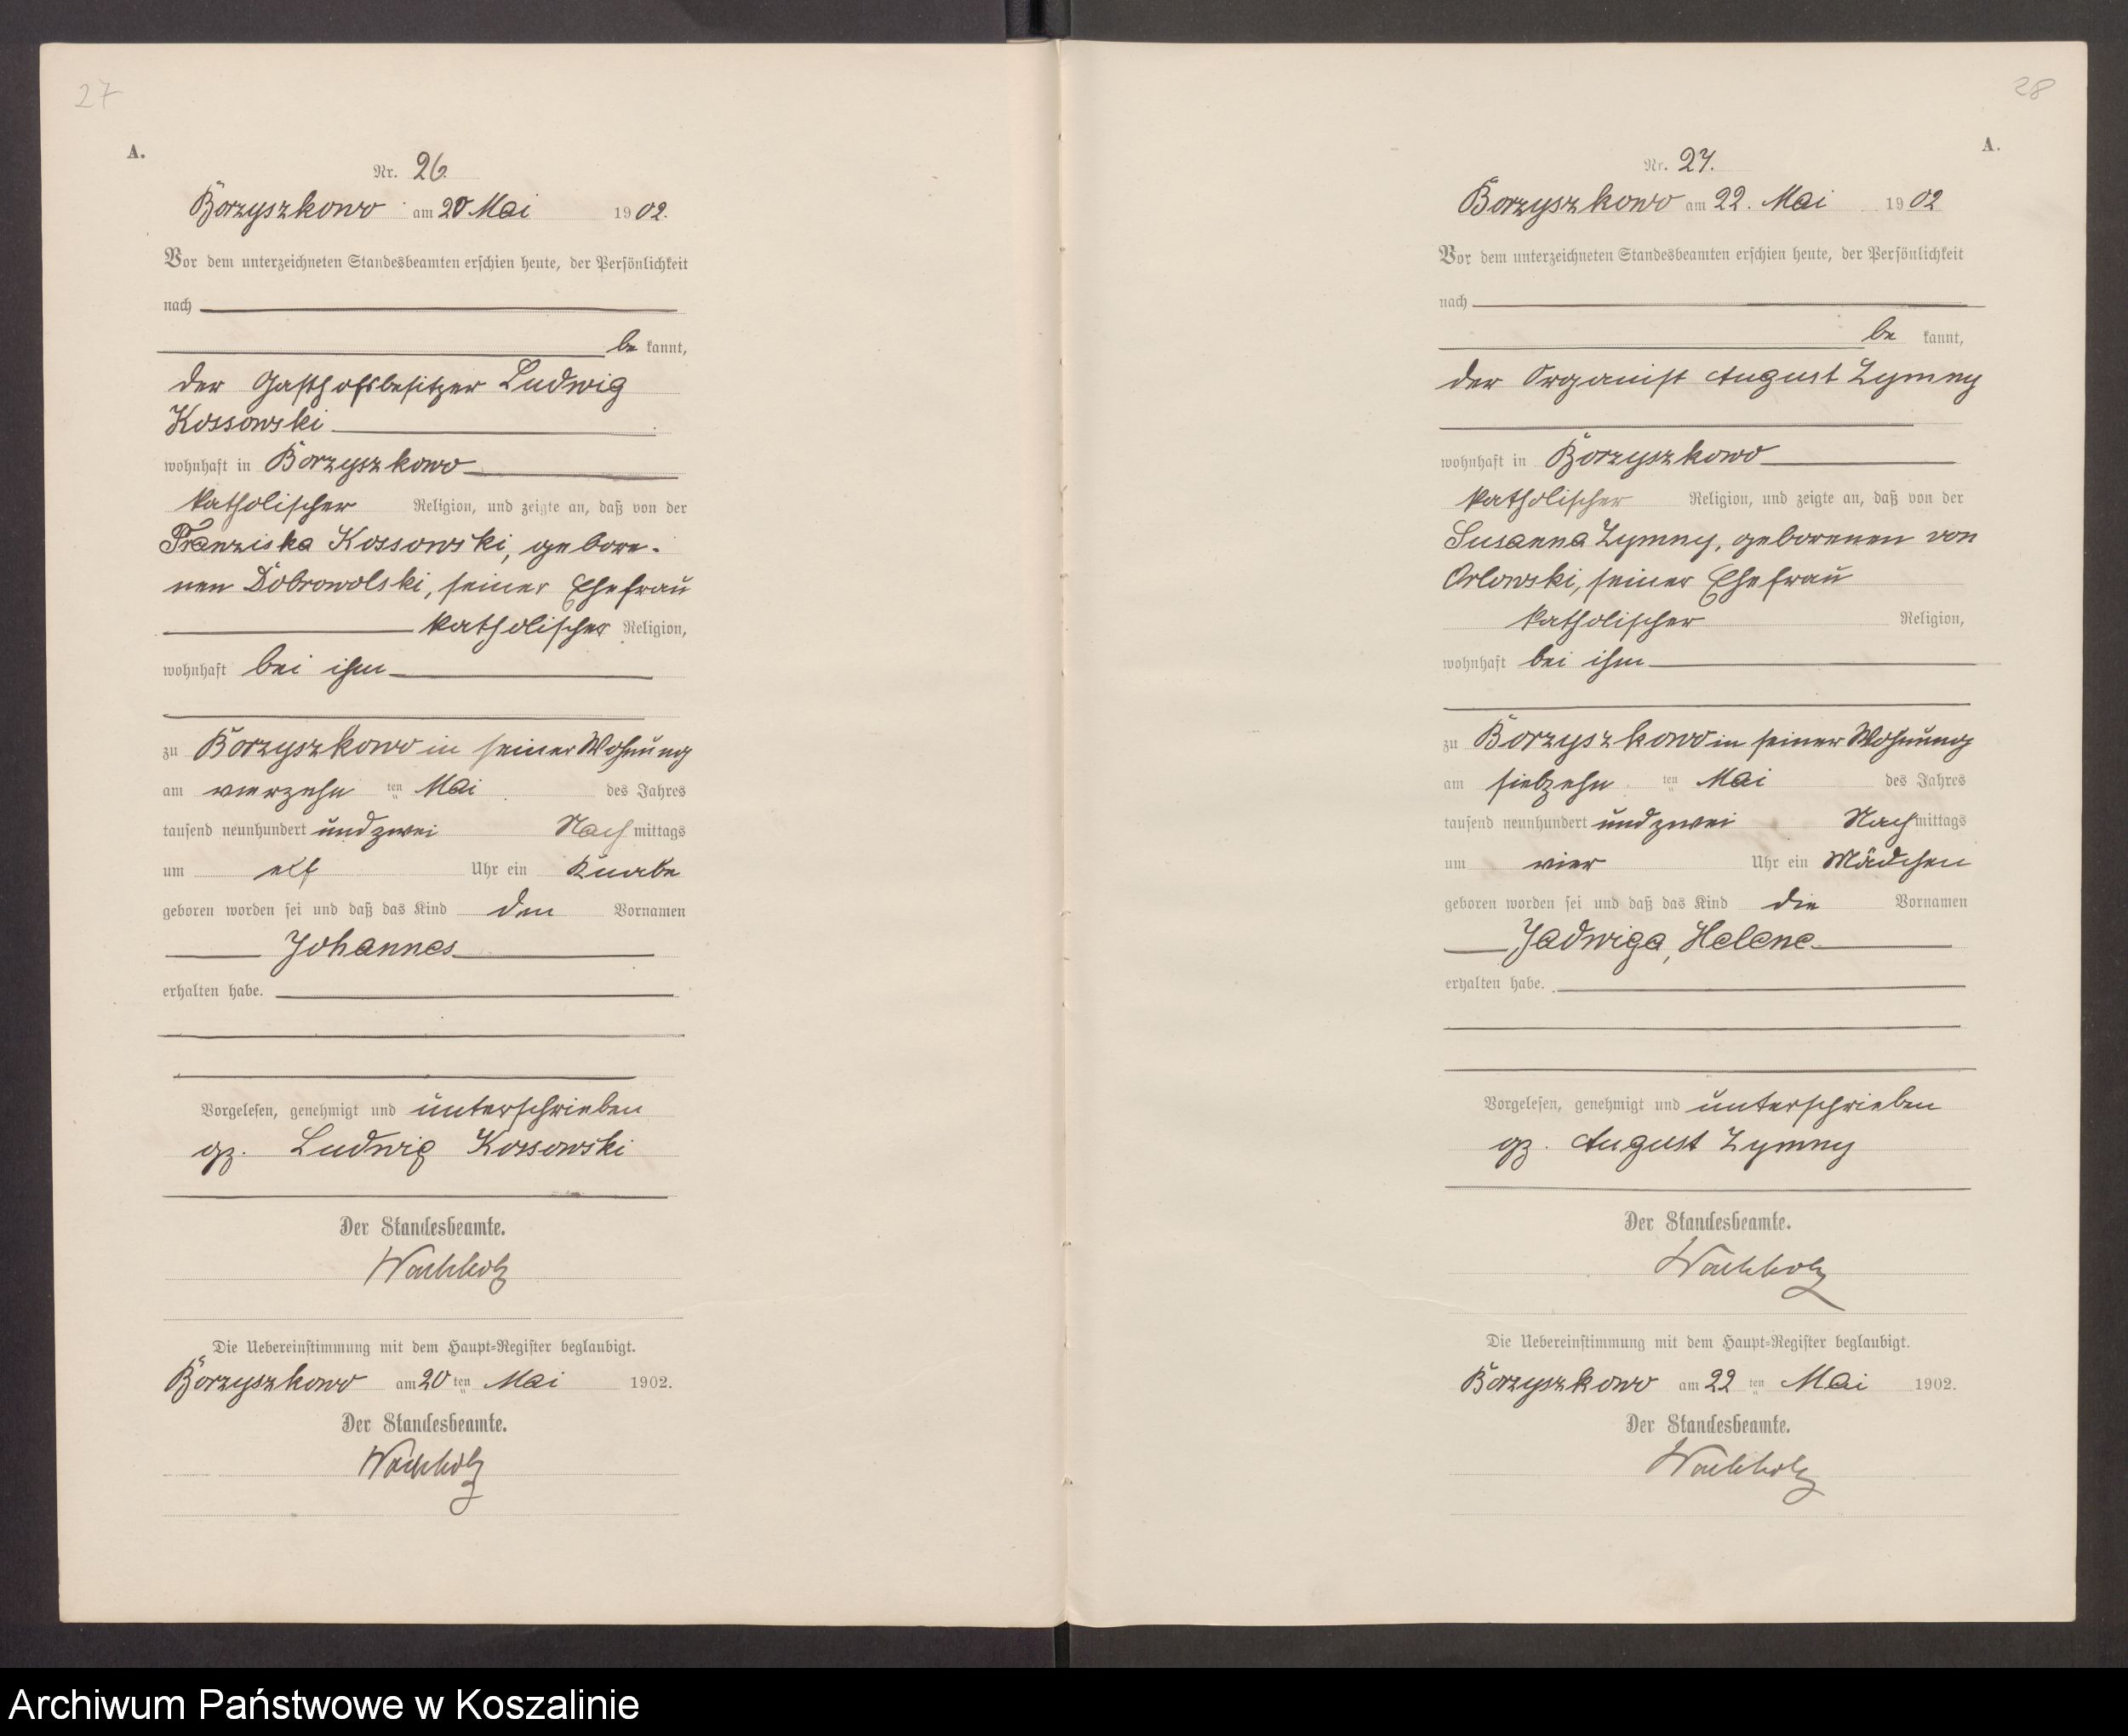 27
A.
Nr. 26.
Borzyszkowo am 20 Mai 1902.
Vor dem unterzeichneten Standesbeamten erschien heute, der Persönlichkeit
nach
be kannt,
der Gasthofsbesitzer Ludwig
Kossowski
wohnhaft in Borzyszkowo
katholischer Religion, und zeigte an, daß von der
Franziska Kossowski, gebore-
nen Dobrowolski, seiner Ehefrau
katholischer Religion,
wohnhaft bei ihm
zu Borzyszkowo in seiner Wohnung
am vierzehn ten Mai des Jahres
tausend neunhundert und zwei Nach mittags
um elf Uhr ein Knabe
geboren worden sei und daß das Kind den Vornamen
Johannes
erhalten habe.
Vorgelesen, genehmigt und unterschrieben
gz. Ludwig Kossowski
Der Standesbeamte.
Wachholz
Die Uebereinstimmung mit dem Haupt=Register beglaubigt.
Borzyszkowo am 20 ten Mai 1902.
Der Standesbeamte.
Wachholz
28
A.
Nr. 27.
Borzyszkowo am 22. Mai 1902
Vor dem unterzeichneten Standesbeamten erschien heute, der Persönlichkeit
nach
be kannt,
der Organist August Zymny
wohnhaft in Borzyszkowo
katholischer Religion, und zeigte an, daß von der
Susanna Zymny, geborenen von
Orlowski, seiner Ehefrau
katholischer Religion,
wohnhaft bei ihm
zu Borzyszkowo in seiner Wohnung
am siebzehn ten Mai des Jahres
tausend neunhundert und zwei Nach mittags
um vier Uhr ein Mädchen
geboren worden sei und daß das Kind die Vornamen
Jadwiga, Helene
erhalten habe.
Vorgelesen, genehmigt und unterschrieben
gz. August Zymny
Der Standesbeamte.
Wachholz
Die Uebereinstimmung mit dem Haupt=Register beglaubigt.
Borzyszkowo am 22 ten Mai 1902.
Der Standesbeamte.
Wachholz
Archiwum Państwowe w Koszalinie